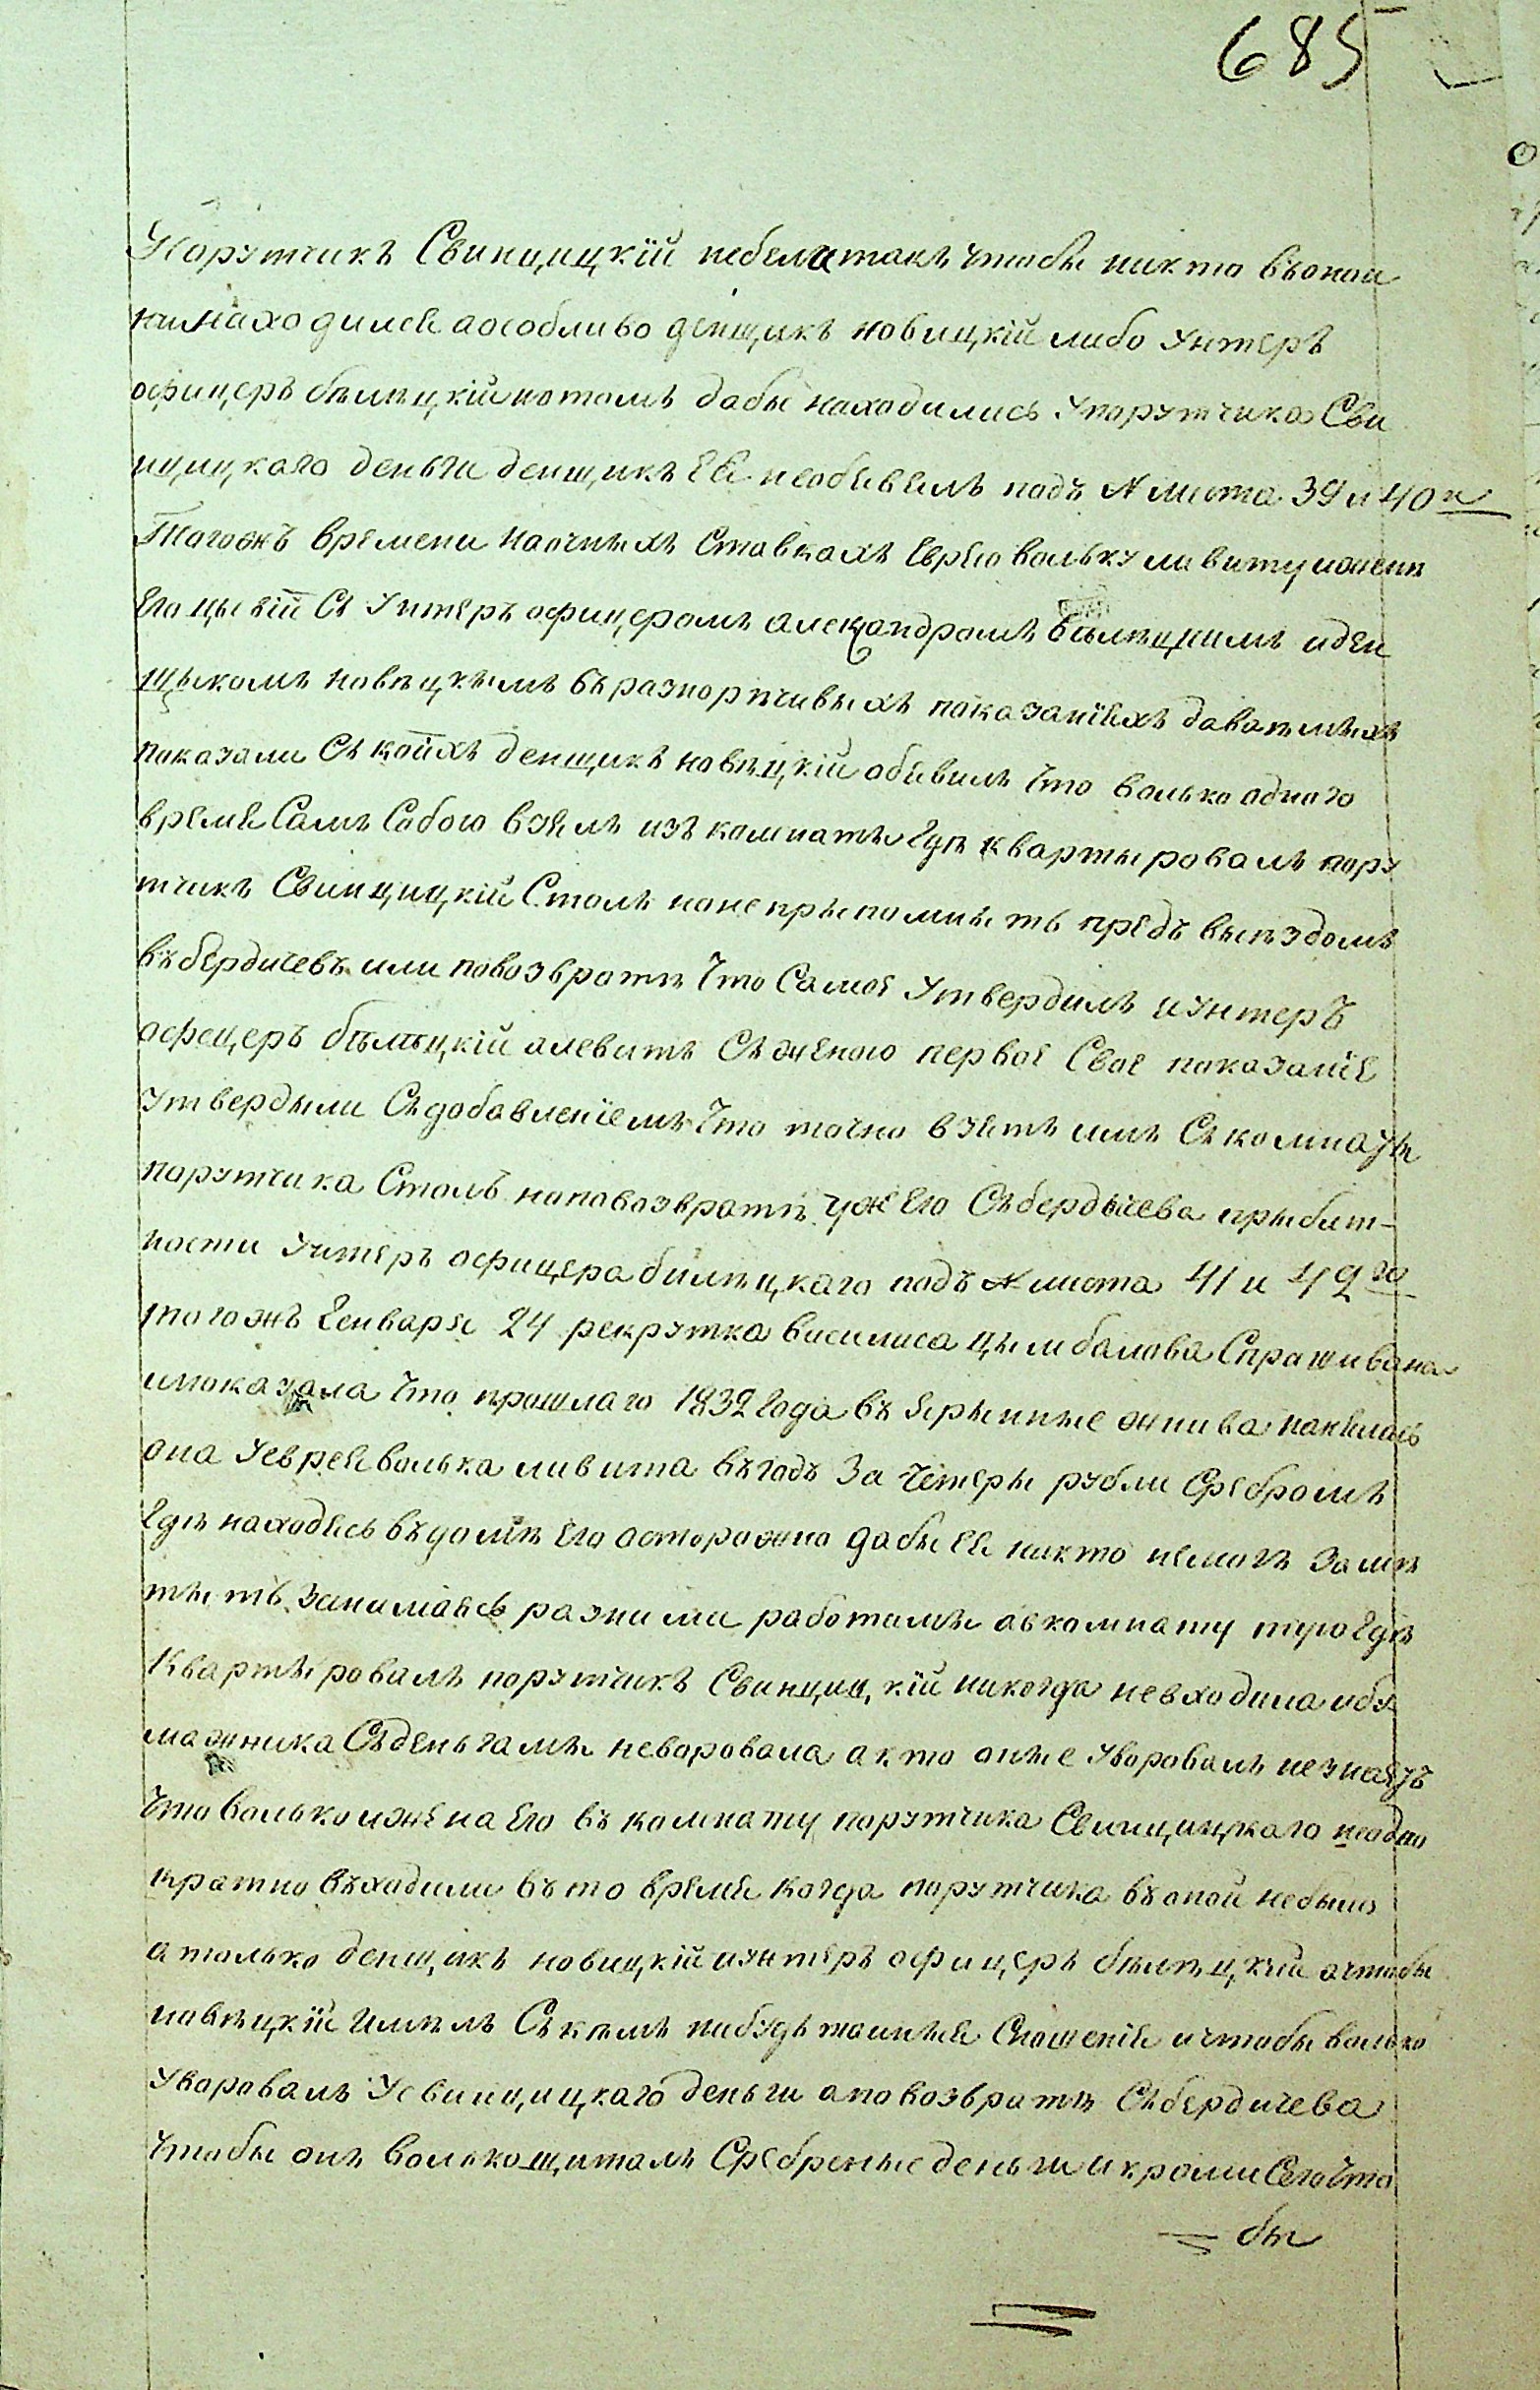 685
Упорутчикъ Свинцицкій небыла такъ чтобы никто въоной
ни находился аособливо денщикъ новицкій либо унтеръ
офицеръ бѣлецкій потомъ дабы находились Упорутчика Сви
нцицкаго деньги денщикъ ей необявялъ подъ № листа 39 и 40й
Тогожъ времени наочныхъ Ставкахъ Еврею вольку ливиту ижени
Его цывій Съ Унтеръ офицеромъ александромъ бѣлецкимъ иден
щыкомъ новѣцкымъ въразноречивыхъ показаніяхъ даванныхъ
показали Съ койхъ денщикъ новѣцкій обявилъ что волько одного
время Самъ Собою взялъ изъ комнаты гдѣ квартыровалъ пору
тчикъ Свинцицкій Столъ ноне прыпомнытъ предъ выѣздомъ
въ бердичевъ или повозвратѣ что Самоя утвердилъ иунтеръ
офецеръ бѣлѣцкій алевитъ Съ женою первоя Свое показанія
утвердыли Съдобавленіемъ что точно взятъ имъ Съ комнаты
порутчика Столъ ноповозвратѣ уже Его Съ бердычева прыбит-
ности Унтеръ офицера билѣцкаго подъ № листа 41 и 42го
тогожъ Генваря 24 рекрутка василиса цымбалова Спрашивана
ипоказала что прошлаго 1832 года въ ярынные жнива нанялась
она Уеврея волька ливита въгодъ За четеры рубли Сребромъ
гдѣ находясь въдомѣ Его осторожно дабы ея никто немогъ замѣ
тытъ занимаясь разними работамы авкомнату тую гдѣ
квартыровалъ порутчикъ Свинцицкій никогда невходила ибу
мажника Съденьгамы неворовала а кто оные уворовалъ незнаетъ
что волько ижена Его въ комнату порутчика Свинцицкаго неодно
кратно въходили въ то время когда порутчика въ оной небыло
атолько денщикъ новицкій иунтеръ офицеръ бѣлѣцкій ачтобы
новѣцкій имѣлъ Съ кѣмъ нибудь таиныя Сношенія ичтобы волько
уворовалъ Усвинцицкаго деньги аповозвратѣ Съ бердичева
чтобы онъ волько щиталъ Сребреные деньги икроми Сего что
бы